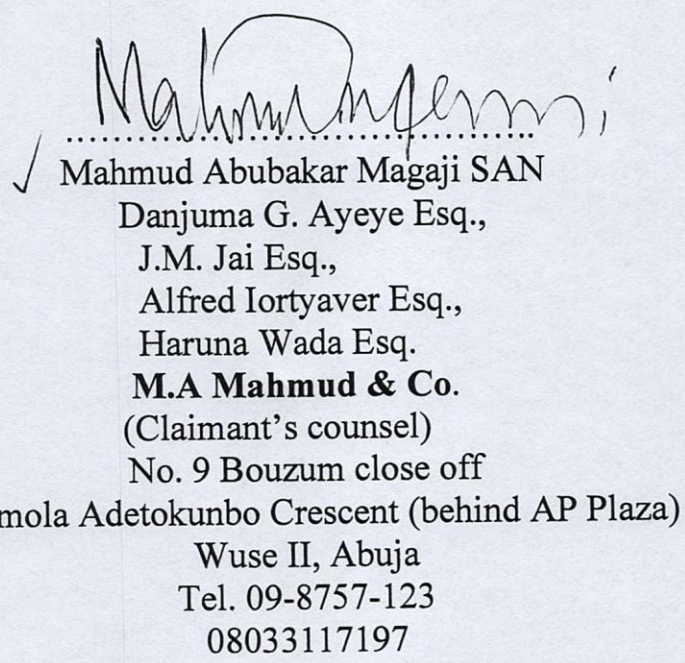 Mahmud Abubakar Magaji SAN
Danjuma G. Ayeye Esq.,
J.M. Jai Esq.,
Alfred Iortyaver Esq.,
Haruna Wada Esq.
M.A Mahmud & Co.
(Claimant's counsel)
No. 9 Bouzum close off
mola Adetokunbo Crescent (behind AP Plaza)
Wuse II, Abuja
Tel. 09-8757-123
08033117197